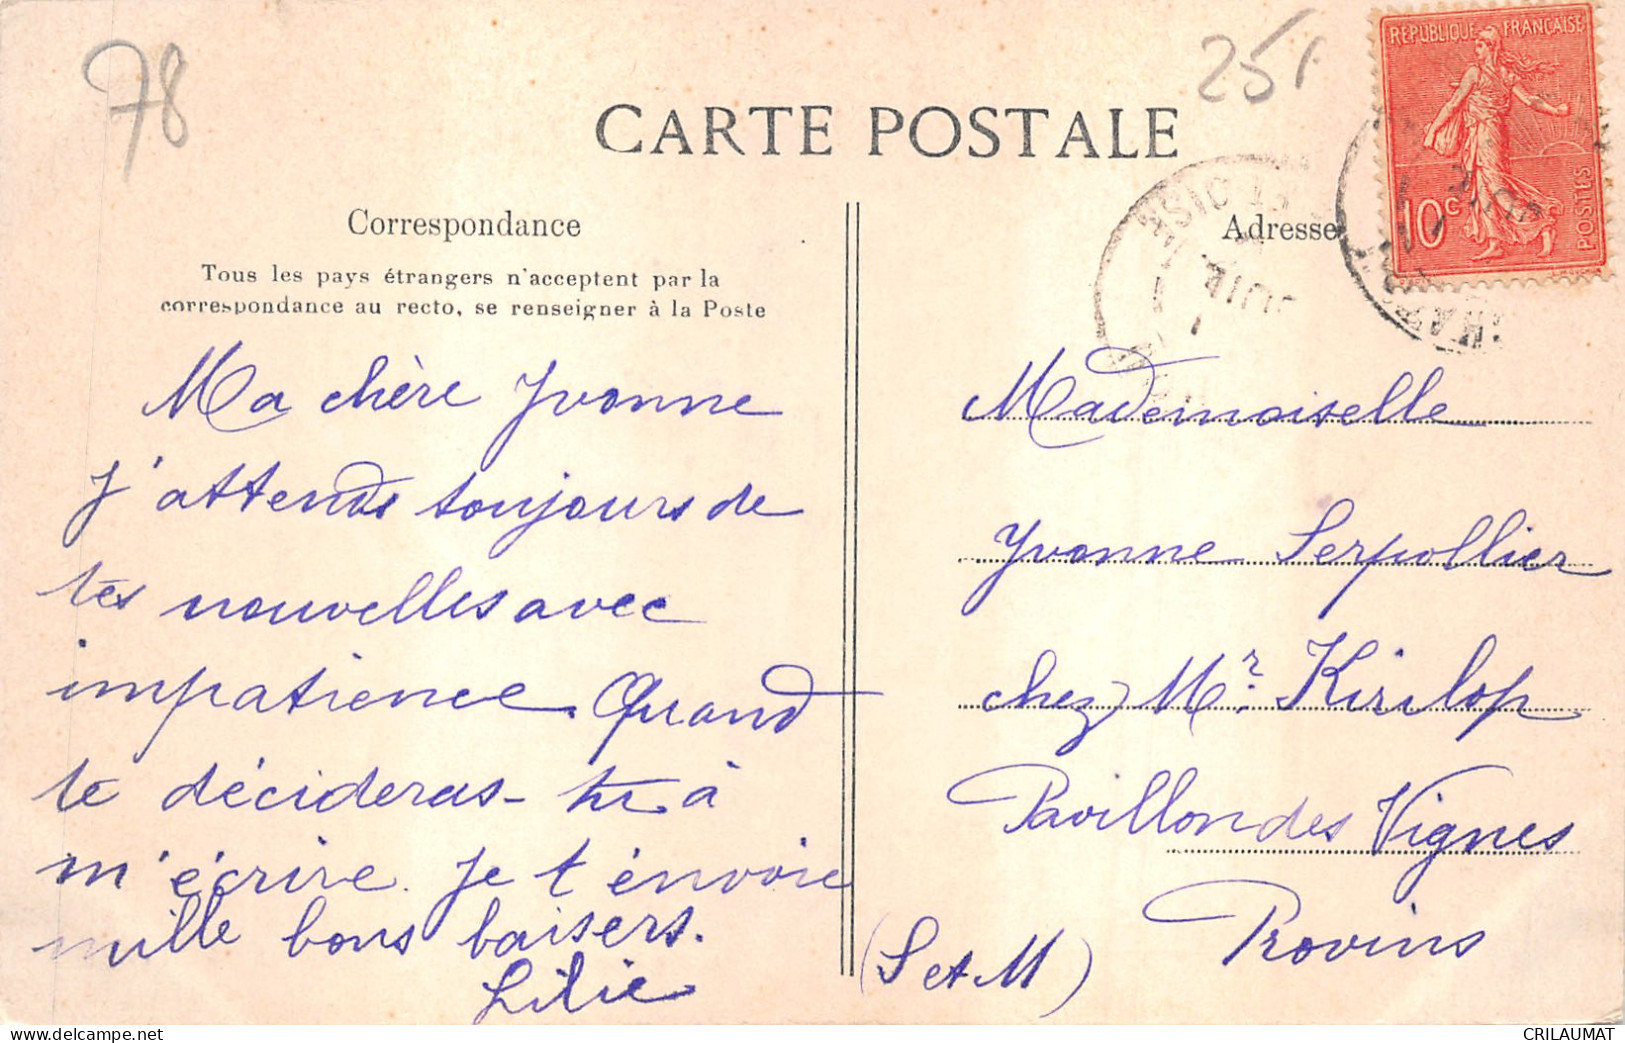 78
25f
CARTE POSTALE
REPUBLIQUE FRANÇAISE
10c
POSTES
Correspondance
Adresse
Tous les pays étrangers n'acceptent par la
correspondance au recto, se renseigner à la Poste
Ma chère Yvonne
j'attends toujours de
tes nouvelles avec
impatience. Quand
te décideras-tu à
m'écrire. Je t'envoie
mille bons baisers.
Lilie
Mademoiselle
Yvonne Serpollier
chez Mr. Kirilop
Pavillon des Vignes
Provins
(S et M)
CRILAUMAT